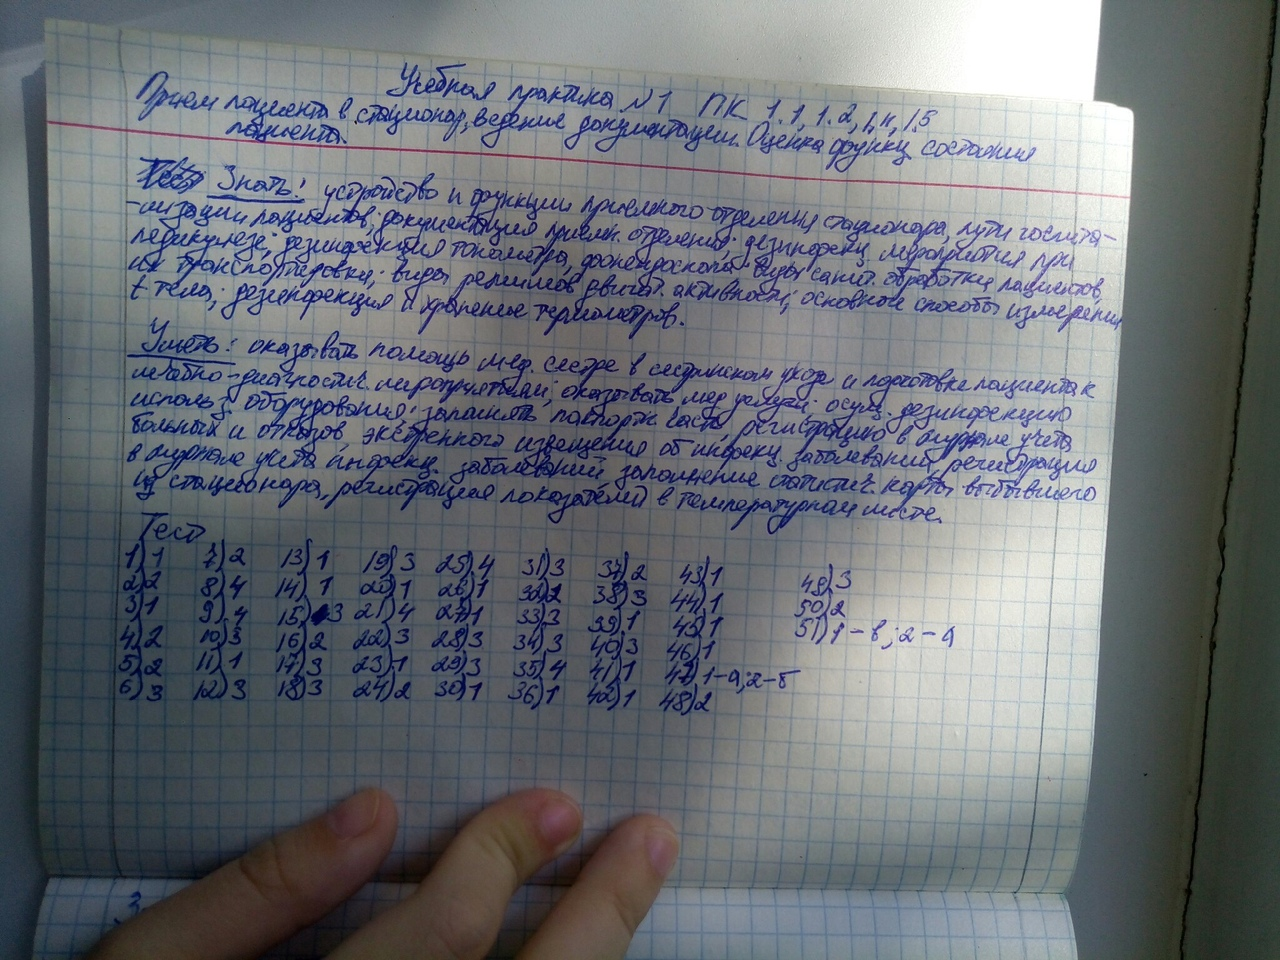 Учебная практика №1 ПК 1.1, 1.2, 1.4, 1.5
Прием пациента в стационар, ведение документации. Оценка функц. состояния
пациента.
Знать: устройство и функции приемного отделения стационара, пути госпита-
лизации пациентов; документация приемн. отделения; дезинфекц. мероприятия при
педикулезе; дезинфекция тонометра, фонендоскопа виды санит. обработки пациентов,
их транспортировки; виды режимов двигат. активности; основные способы измерения
t тела; дезинфекция и хранение термометров.
Уметь: оказывать помощь мед. сестре в сестринском уходе и подготовке пациента к
лечебно-диагностич. мероприятиям; оказывать мед услуги; осущ. дезинфекцию
использ. оборудования; заполнять паспортн. часть, регистрацию в журнале учета
больных и отказов, экстренного извещения об инфекц. заболевании, регистрация
в журнале учета инфекц. заболеваний, заполнение статистич. карты выбывшего
из стационара, регистрация показателей в температурном листе.
Тест
1) 1 7) 2 13) 1 19) 3 25) 4 31) 3 37) 2 43) 1 49) 3
2) 2 8) 4 14) 1 20) 1 26) 1 32) 2 38) 3 44) 1 50) 2
3) 1 9) 4 15) 3 21) 4 27) 1 33) 3 39) 1 45) 1 51) 1-в; 2-а
4) 2 10) 3 16) 2 22) 3 28) 3 34) 3 40) 3 46) 1
5) 2 11) 1 17) 3 23) 1 29) 3 35) 4 41) 1 47) 1-а; 2-б
6) 3 12) 3 18) 3 24) 2 30) 1 36) 1 42) 1 48) 2